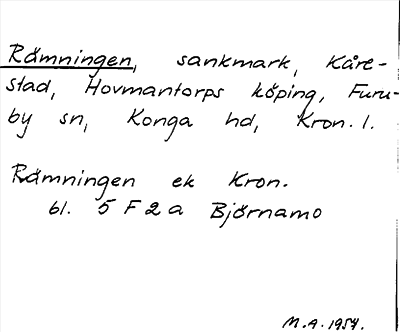 Rämningen, sankmark, Kåre-
stad, Hovmantorps köping, Furu-
by sn, Konga hd, Kron. l.
Rämningen ek Kron.
bl. 5 F 2 a Björnamo
M.A. 1954.